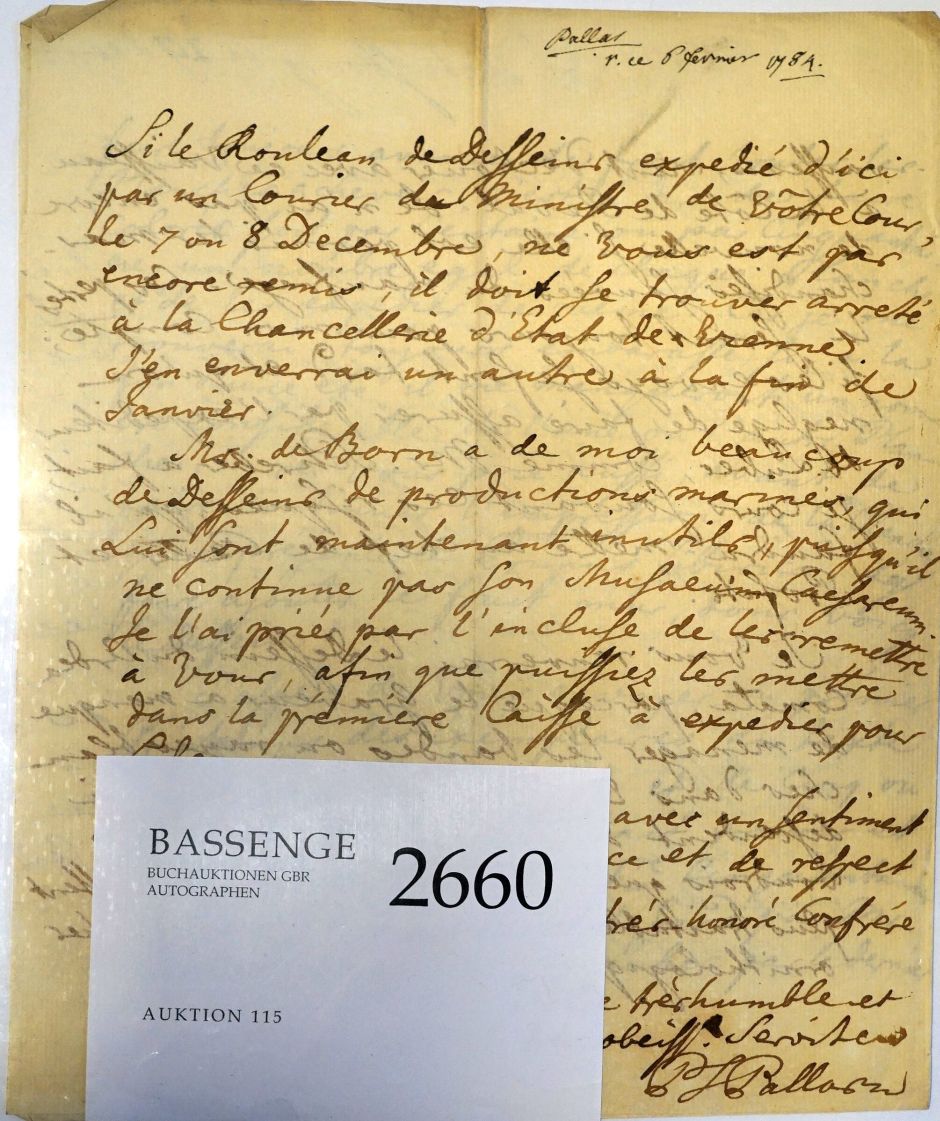 Pallas
r. ce 6 fevrier 1784.
Si le Rouleau de Desseins expedié d'ici
par un Courier du Ministre de Vôtre Cour,
le 7 ou 8 Decembre, ne Vous est pas
encore remis, il doit se trouver arreté
à la Chancellerie d'Etat de Vienne.
J'en enverrai un autre à la fin de
Janvier.
Mr. de Born a de moi beaucoup
de Desseins de productions marines, qui
Lui sont maintenant inutils, puisqu'il
ne continue pas son Musaeum Caesareum.
Je l'ai prié par l'incluse de les remettre
à Vous, afin que puissiez les mettre
dans la première Caisse à expedier pour
avec un sentiment
ce et de respect
très honoré Confrére
e trèshumble et
obeiss. Serviteur
PS Pallas
BASSENGE
BUCHAUKTIONEN GBR
AUTOGRAPHEN
2660
AUKTION 115